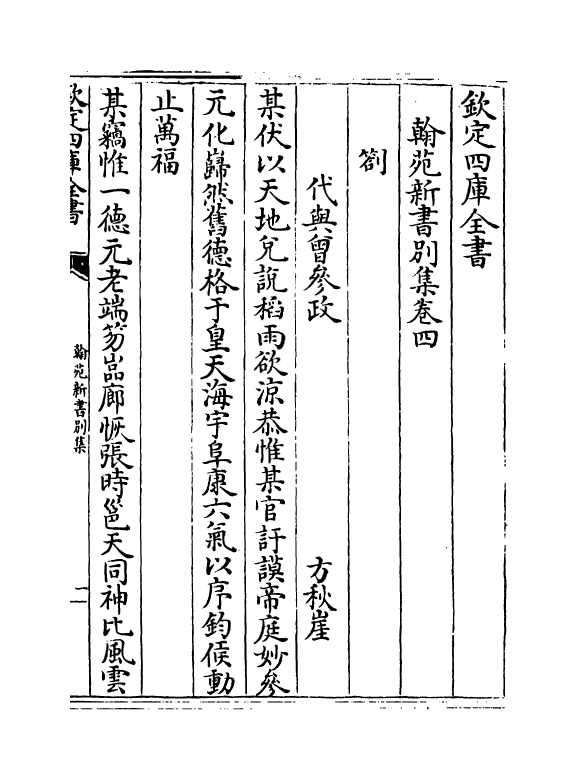 欽定四庫全書
翰苑新書別集卷四
劄
代與曾參政　方秋崖
某伏以天地兌說稻雨欲涼恭惟某官訏謨帝庭妙參
元化巋然舊德格于皇天海宇阜康六氣以序鈞候動
止萬福
某竊惟一德元老端笏嵓廊恢張時邕天同神比風雲
欽定四庫全書
翰苑新書別集